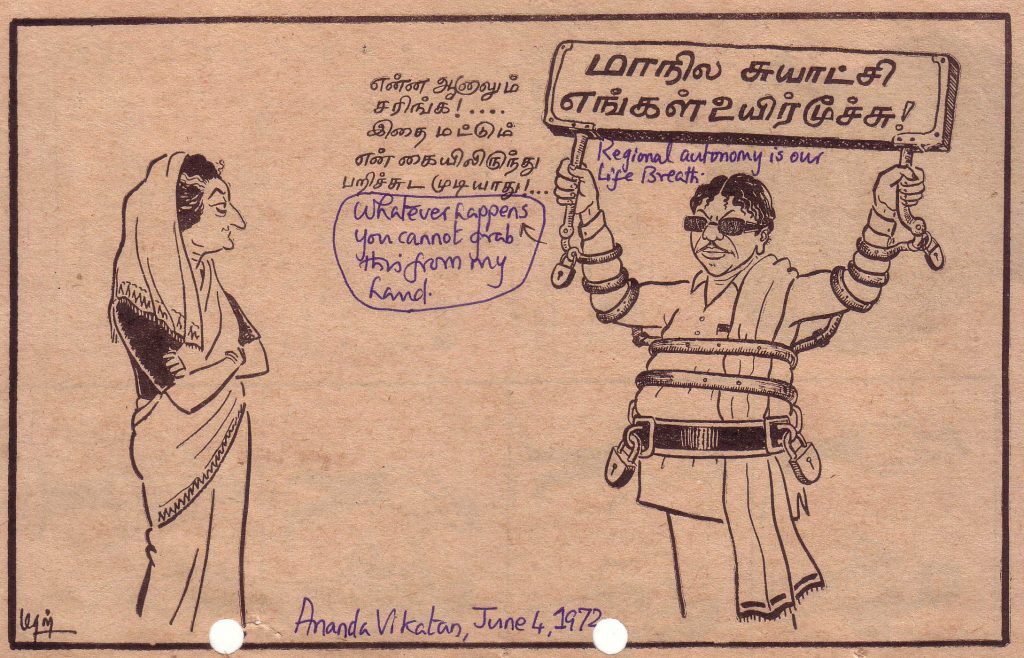 மாநில சுயாட்சி
எங்கள் உயிர்மூச்சு!
என்ன ஆனாலும்
சரிங்க!....
இதை மட்டும்
என் கையிலிருந்து
பறிச்சுட முடியாது!...
Regional autonomy is our
Life Breath.
Whatever happens
you cannot grab
this from my
hand.
மதன்
Ananda Vikatan, June 4, 1972